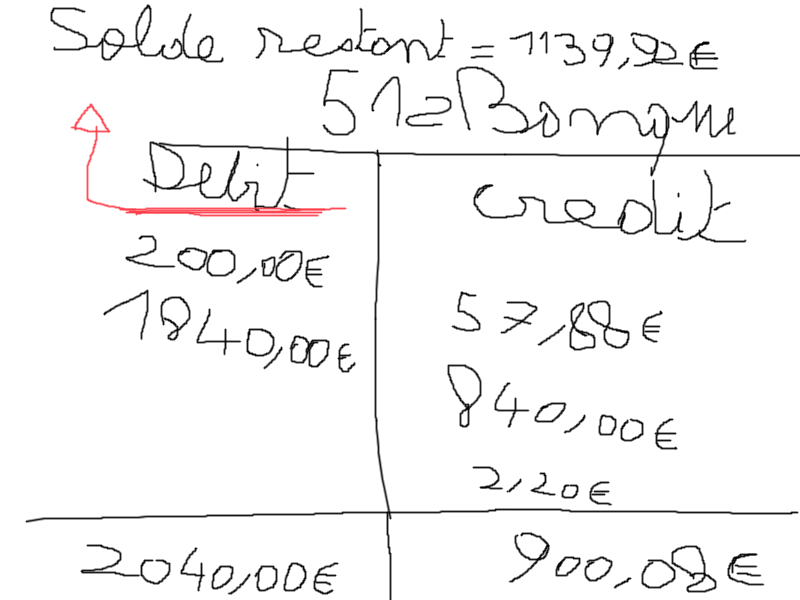 Solde restant = 1139,92€
512 Banque
Debit
credit
200,00€
57,88€
1840,00€
840,00€
2,20€
2040,00€
900,08€